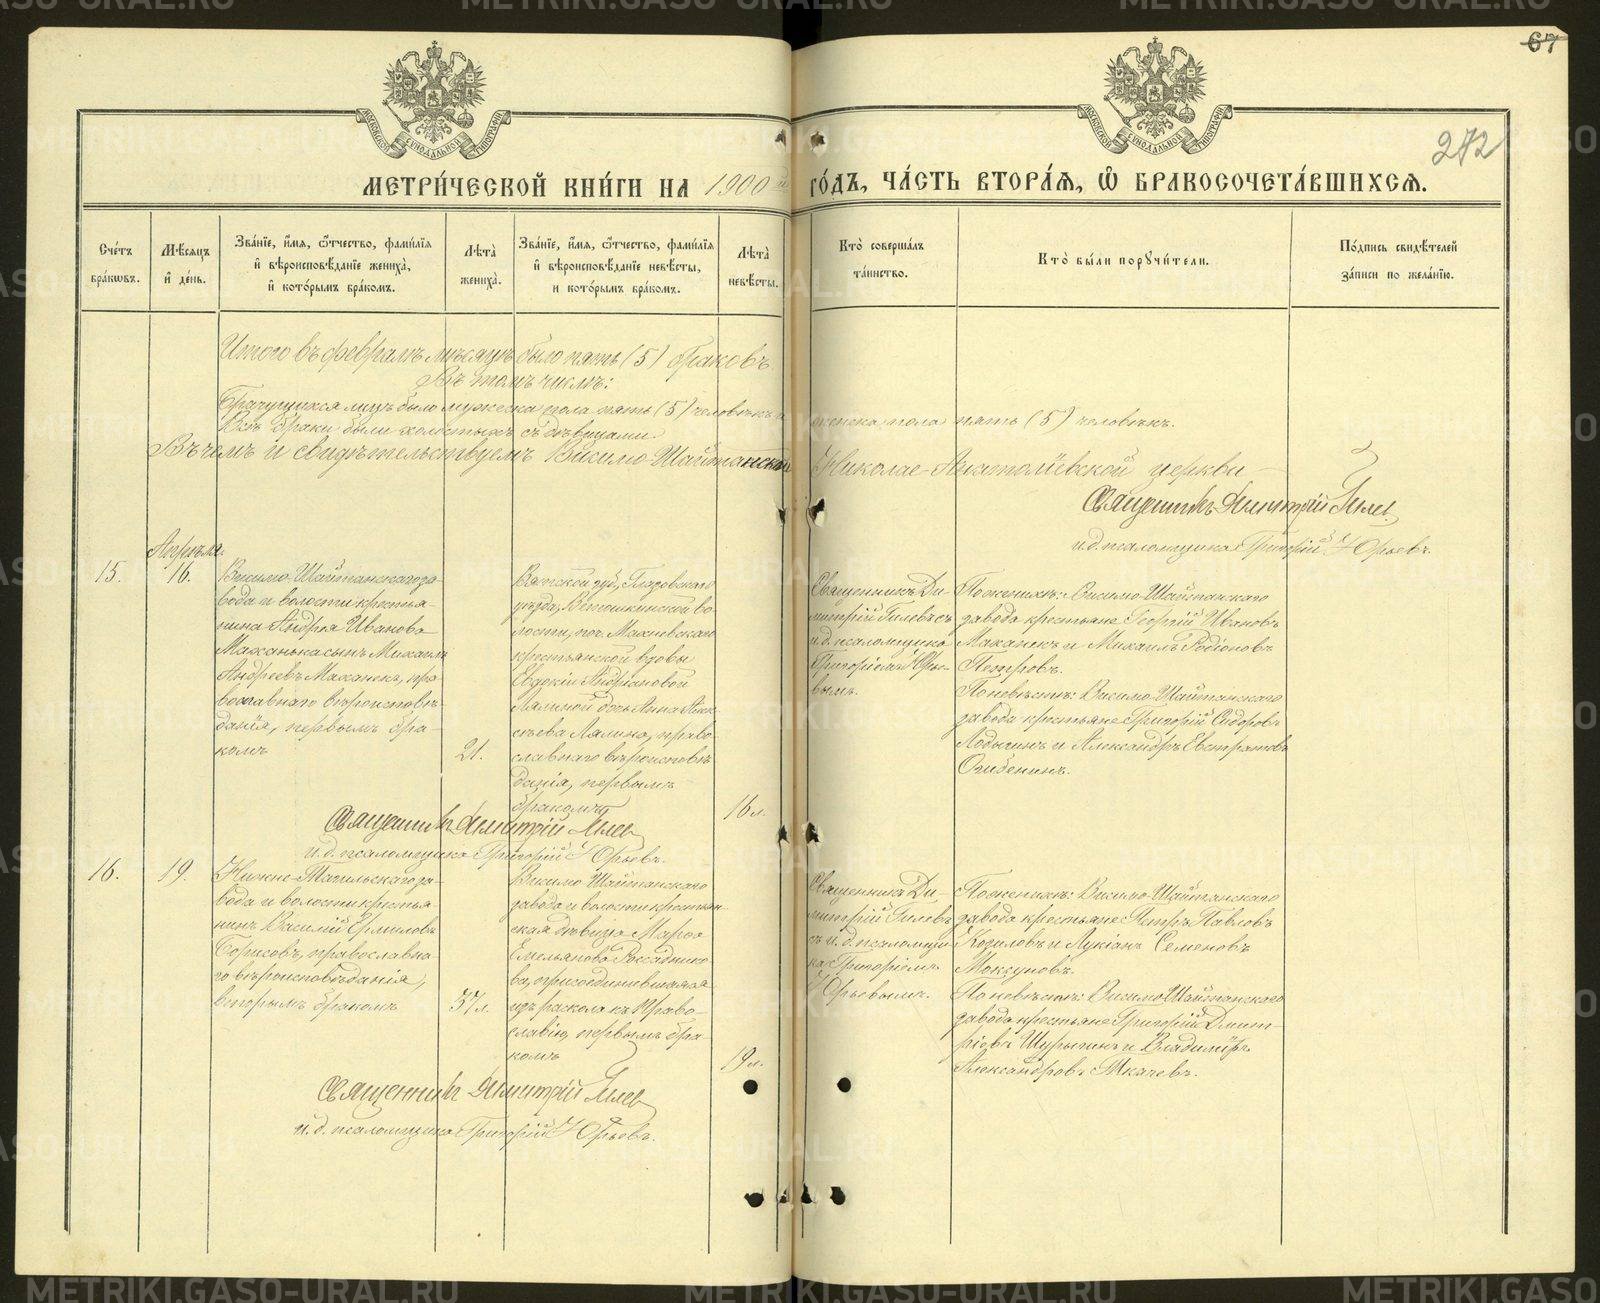 67
272
МОСКОВСКОЙ СѴНОДАЛЬНОЙ ТИПОГРАФІИ
МОСКОВСКОЙ СѴНОДАЛЬНОЙ ТИПОГРАФІИ
МЕТРИ́ЧЕСКОЙ КНИ́ГИ НА 1900 й ГО́ДЪ, ЧА́СТЬ ВТОРА́Я, Ѿ БРАКОСОЧЕТА́ВШИХСЯ.
Сче́тъ
бра́кѡвъ.
Мѣ́сяцъ
и҆ де́нь.
Зва́нїе, и҆́мя, ѻ҆́тчество, фами́лїя
и҆ вѣроисповѣ́данїе жениха̀,
и҆ кото́рымъ бра́комъ.
Лѣ́та
жениха̀.
Зва́нїе, и҆́мя, ѻ҆́тчество, фами́лїя
и҆ вѣроисповѣ́данїе невѣ́сты,
и кото́рымъ бра́комъ.
Лѣ́та
невѣ́сты.
Кто̀ соверша́лъ
та́инство.
Кто̀ бы́ли поручи́тели.
По́дпись свидѣ́телей
за́писи по жела́нїю.
Итого въ февралѣ мѣсяцѣ было пять (5) браковъ
Въ томъ числѣ:
Брачущихся лицъ было мужеска пола пять (5) человѣкъ, а женска пола пять (5) человѣкъ.
Всѣ браки были холостыхъ съ дѣвицами.
Въ чемъ и свидѣтельствуемъ Висимо-Шайтанской Николае-Анатоліевской церкви
Священникъ Димитрій Гилев
и. д. псаломщика Григорій Юрьевъ.
Апрѣля
15.
16.
Висимо-Шайтанскаго за-
вода и волости крестья-
нина Андрея Иванова
Маханька сынъ Михаилъ
Андреевъ Маханекъ, пра
вославнаго вѣроисповѣ-
данія, первымъ бра-
комъ
21.
Вятской губ., Глазовскаго
уѣзда, Ветошкинской во
лости, поч. Махневскаго
крестьянской вдовы
Евдокіи Андріановой
Лялиной дочь Анна Алек
сѣева Лялина, право
славнаго вѣроисповѣ
данія, первымъ
бракомъ
16 л.
Священникъ Ди-
митрій Гилевъ съ
и. д. псаломщика
Григоріемъ Юрье-
вымъ.
По женихѣ: Висимо-Шайтанскаго
завода крестьяне Георгій Ивановъ
Маханекъ и Михаилъ Родіоновъ
Петровъ.
По невѣстѣ: Висимо-Шайтанскаго
завода крестьяне Григорій Сидоровъ
Лодыгинъ и Александръ Евстратовъ
Ошбенинъ.
Священникъ Димитрій Гилев
и. д. псаломщика Григорій Юрьевъ.
16.
19.
Нижне-Тагильскаго за-
вода и волости крестья-
нинъ Василій Ермиловъ
Борисовъ, православна-
го вѣроисповѣданія,
вторымъ бракомъ
37 л.
Висимо-Шайтанскаго
завода и волости крестьян
ская дѣвица Марѳа
Емельянова Разсаднико
ва, присоединившаяся
изъ раскола къ Право-
славію, первымъ бра-
комъ
19 л.
Священникъ Ди-
митрій Гилевъ
съ и. д. псаломщи
ка Григоріемъ
Юрьевымъ.
По женихѣ: Висимо-Шайтанскаго
завода крестьяне Петръ Павловъ
Козиловъ и Лукіанъ Семеновъ
Моксуновъ.
По невѣстѣ: Висимо-Шайтанскаго
завода крестьяне Григорій Дмит-
ріевъ Шурыгинъ и Владиміръ
Александровъ Ткачевъ.
Священникъ Димитрій Гилев
и. д. псаломщика Григорій Юрьевъ.
METRIKI.GASO-URAL.RU